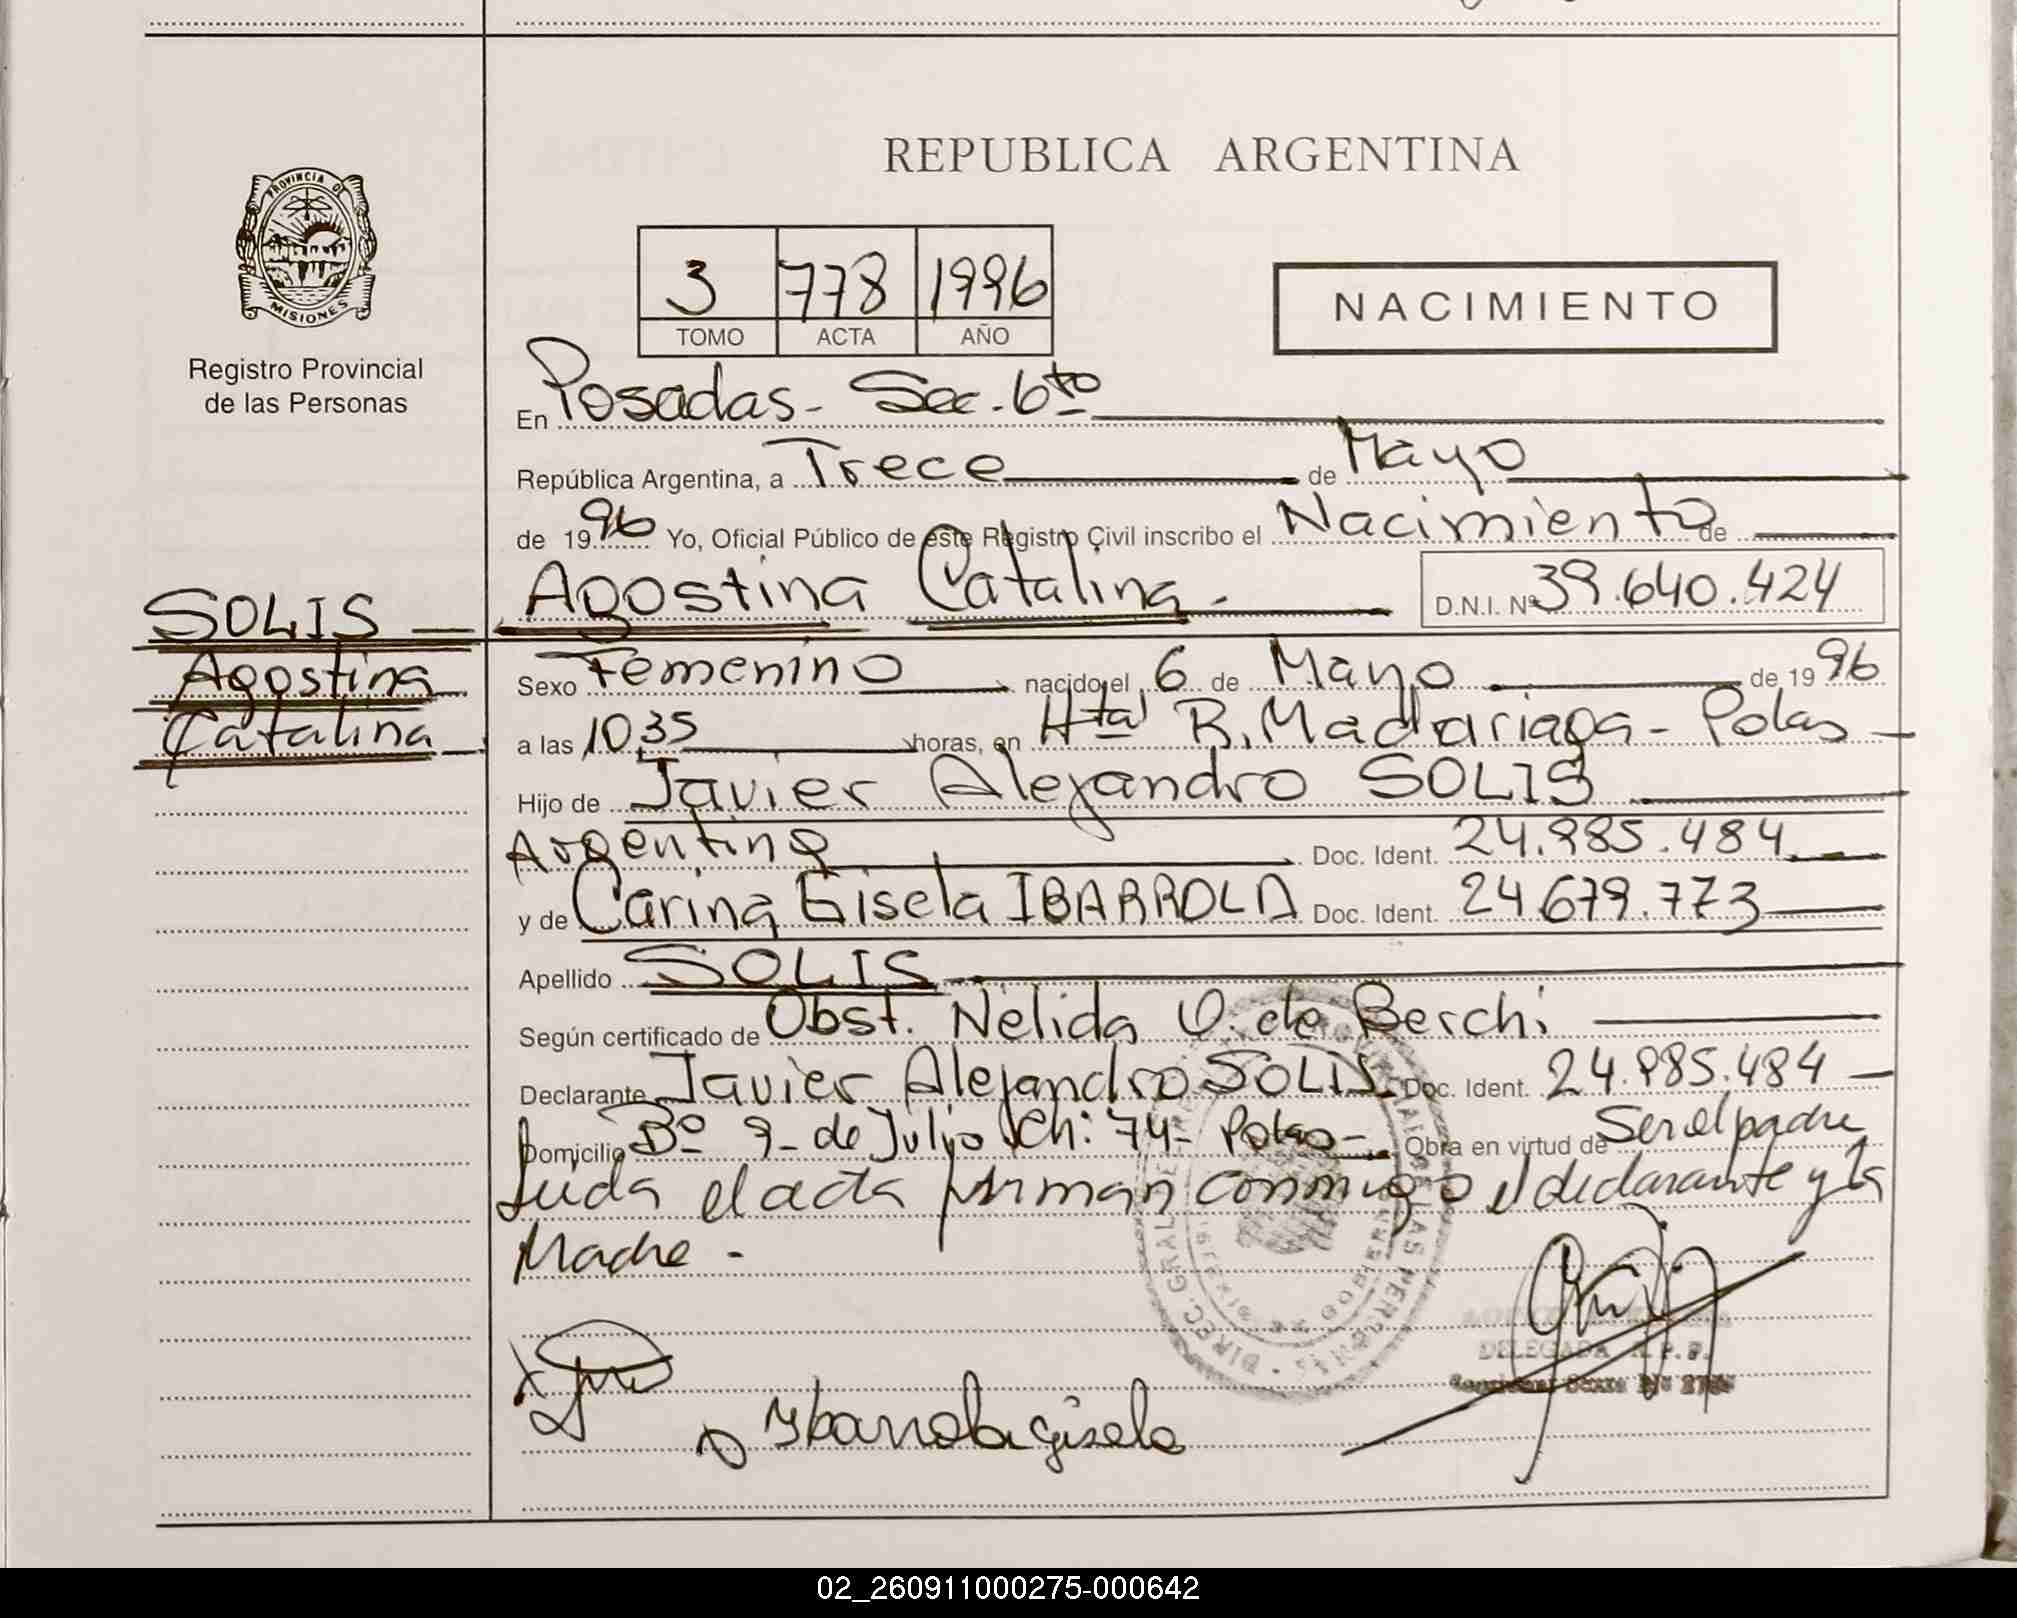 REPUBLICA ARGENTINA
PROVINCIA DE
MISIONES
Registro Provincial
de las Personas
3 778 1996
TOMO ACTA AÑO
NACIMIENTO
En Posadas - Sec. 6to
República Argentina, a Trece de Mayo
de 1996 Yo, Oficial Público de este Registro Civil inscribo el Nacimiento de
SOLIS
Agostina
Catalina
Agostina Catalina.- D.N.I. Nº 39.640.424
Sexo Femenino nacido el 6 de Mayo de 1996
a las 10,35 horas, en Htal R. Madariaga - Pdas -
Hijo de Javier Alejandro SOLIS
Argentina Doc. Ident. 24.985.484
y de Carina Gisela IBARROLA Doc. Ident. 24679.773
Apellido SOLIS
Según certificado de Obst. Nelida O. de Berchi
Declarante Javier Alejandro SOLIS Doc. Ident. 24.985.484
Domicilio Bº 9 - de Julio Ch: 74 - Pdas - Obra en virtud de Ser el padre
Leida el acta firman conmigo el declarante y la
Madre -
DIREC. GRAL. DE LAS PERSONAS
DELEGADA R.P.P.
Ibarrola gisela
02_260911000275-000642